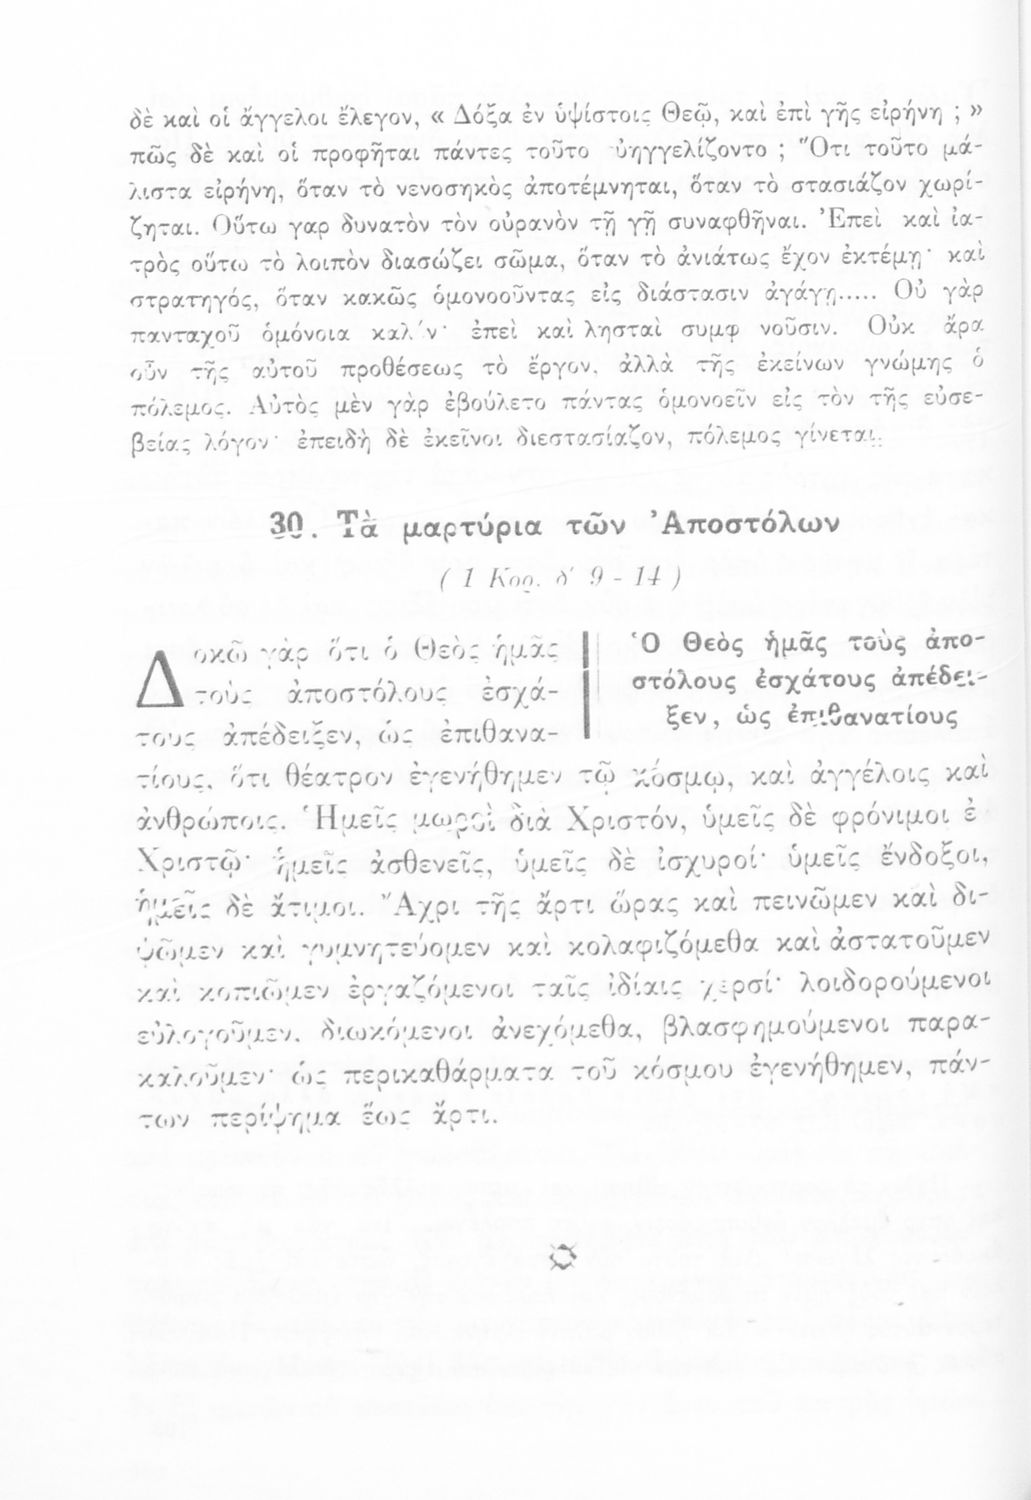 δὲ καὶ οἱ ἄγγελοι ἔλεγον, « Δόξα ἐν ὑψίστοις Θεῷ, καὶ ἐπὶ γῆς εἰρήνη ; »
πῶς δὲ καὶ οἱ προφῆται πάντες τοῦτο ὐηγγελίζοντο ; Ὅτι τοῦτο μά-
λιστα εἰρήνη, ὅταν τὸ νενοσηκὸς ἀποτέμνηται, ὅταν τὸ στασιάζον χωρί-
ζηται. Οὕτω γαρ δυνατὸν τὸν οὐρανὸν τῇ γῇ συναφθῆναι. Ἐπεὶ καὶ ἰα-
τρὸς οὕτω τὸ λοιπὸν διασώζει σῶμα, ὅταν τὸ ἀνιάτως ἔχον ἐκτέμῃ· καὶ
στρατηγός, ὅταν κακῶς ὁμονοοῦντας εἰς διάστασιν ἀγάγῃ..... Οὐ γὰρ
πανταχοῦ ὁμόνοια καλ ν· ἐπεὶ καὶ λησταὶ συμφ νοῦσιν. Οὐκ ἄρα
οὖν τῆς αὐτοῦ προθέσεως τὸ ἔργον, ἀλλὰ τῆς ἐκείνων γνώμης ὁ
πόλεμος. Αὐτὸς μὲν γὰρ ἐβούλετο πάντας ὁμονοεῖν εἰς τὸν τῆς εὐσε-
βείας λόγον· ἐπειδὴ δὲ ἐκεῖνοι διεστασίαζον, πόλεμος γίνεται.
30. Τὰ μαρτύρια τῶν Ἀποστόλων
( 1 Κορ. δ' 9 - 14 )
Δοκῶ γὰρ ὅτι ὁ Θεὸς ἡμᾶς
τοὺς ἀποστόλους ἐσχά-
τους ἀπέδειξεν, ὡς ἐπιθανα-
Ὁ Θεὸς ἡμᾶς τοὺς ἀπο-
στόλους ἐσχάτους ἀπέδει-
ξεν, ὡς ἐπιθανατίους
τίους, ὅτι θέατρον ἐγενήθημεν τῷ κόσμῳ, καὶ ἀγγέλοις καὶ
ἀνθρώποις. Ἡμεῖς μωροὶ διὰ Χριστόν, ὑμεῖς δὲ φρόνιμοι ἐ
Χριστῷ· ἡμεῖς ἀσθενεῖς, ὑμεῖς δὲ ἰσχυροί· ὑμεῖς ἔνδοξοι,
ἡμεῖς δὲ ἄτιμοι. Ἄχρι τῆς ἄρτι ὥρας καὶ πεινῶμεν καὶ δι-
ψῶμεν καὶ γυμνητεύομεν καὶ κολαφιζόμεθα καὶ ἀστατοῦμεν
καὶ κοπιῶμεν ἐργαζόμενοι ταῖς ἰδίαις χερσί· λοιδορούμενοι
εὐλογοῦμεν, διωκόμενοι ἀνεχόμεθα, βλασφημούμενοι παρα-
καλοῦμεν· ὡς περικαθάρματα τοῦ κόσμου ἐγενήθημεν, πάν-
των περίψημα ἕως ἄρτι.